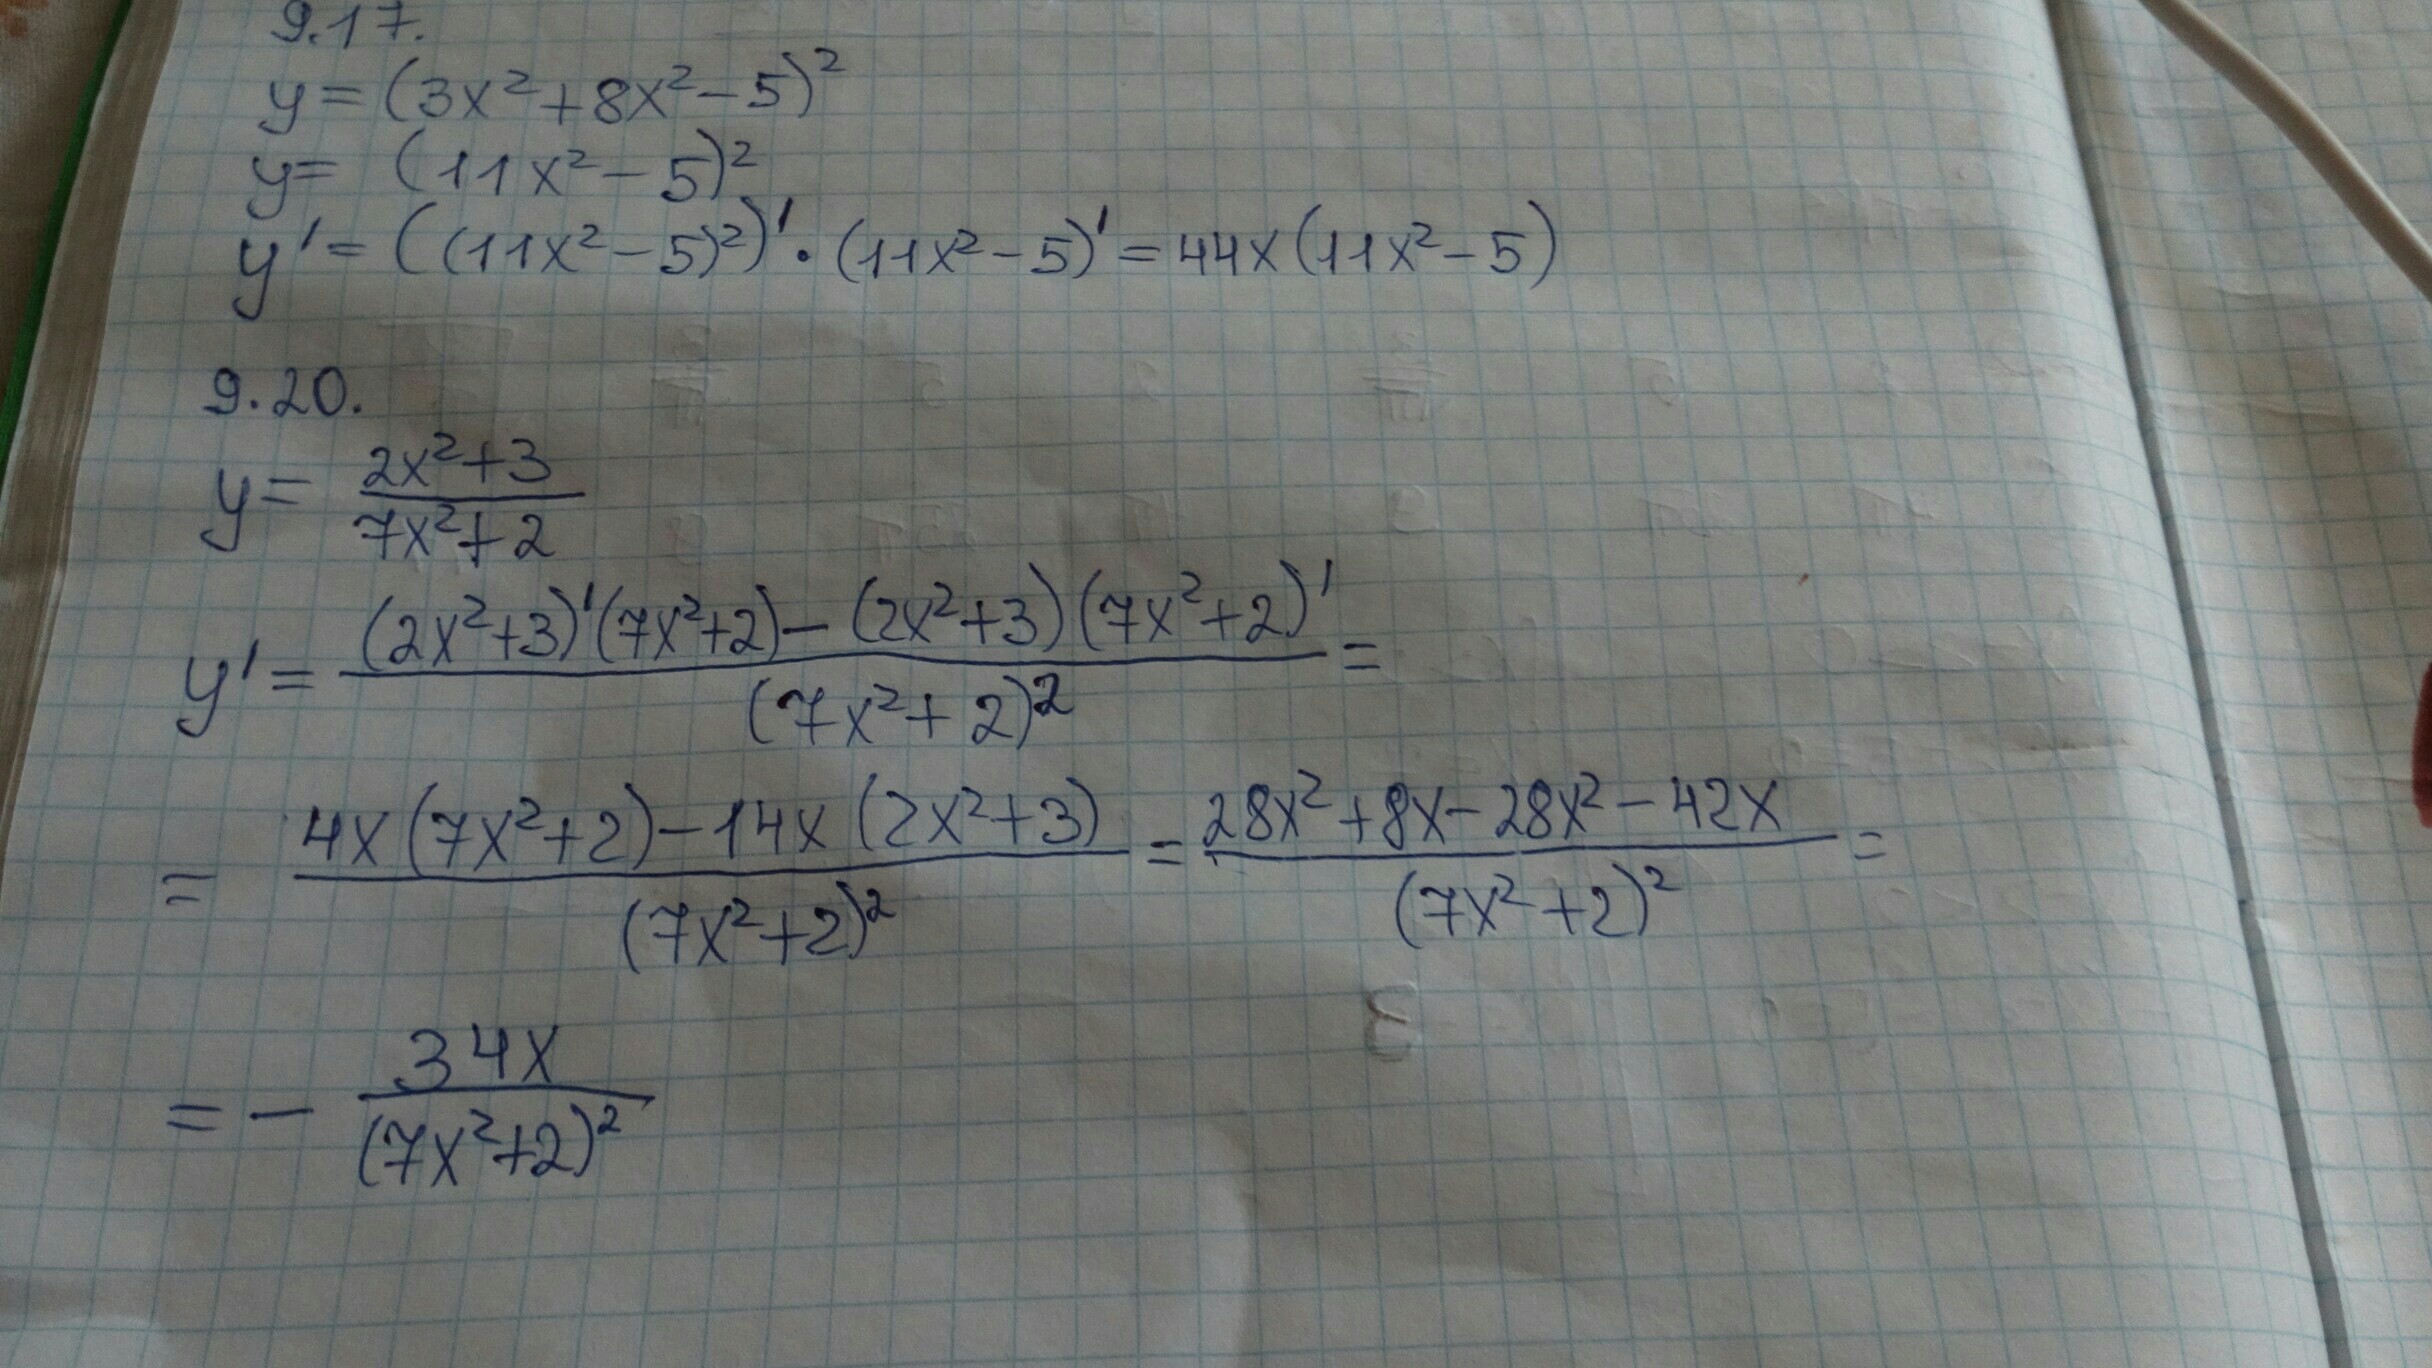 9.17.
y = (3x² + 8x² – 5)²
y = (11x² – 5)²
y' = ((11x² – 5)²)' · (11x² – 5)' = 44x(11x² – 5)
9.20.
y = (2x² + 3)/(7x² + 2)
y' = ((2x² + 3)'(7x² + 2) – (2x² + 3)(7x² + 2)')/(7x² + 2)² =
= (4x(7x² + 2) – 14x(2x² + 3))/(7x² + 2)² = (28x² + 8x – 28x² – 42x)/(7x² + 2)² =
= – 34x/(7x² + 2)²